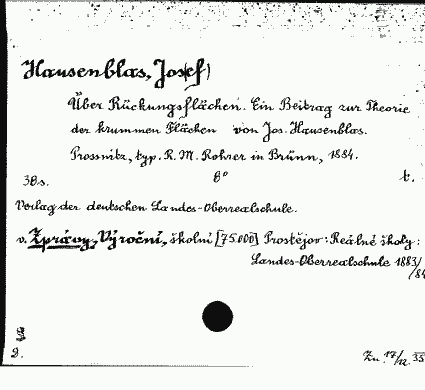 Hausenblas, Jos(ef)
Über Rückungsflächen. Ein Beitrag zur Theorie
der krummen Flächen von Jos. Hausenblas.
Prossnitz, typ. R. M. Rohrer in Brünn, 1884.
38s. 8° t.
Verlag der deutschen Landes-Oberrealschule.
v. Zprávy, Výroční, školní [75.000] Prostějov: Reálné školy:
Landes-Oberrealschule 1883/
/84
2.
Zu. 17/12. 35